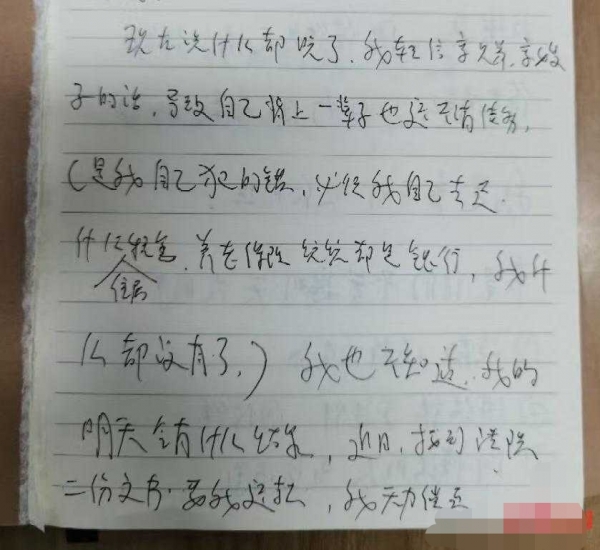 现在说什么都晚了.我轻信李兄弟,李发
子的话,导致自己背上一辈子也还不清债务,
(是我自己犯的错,必须我自己去还.
什么租金.养老保险统统都是银行,我什
住房
么都没有了.)我也不知道.我的
明天会有什么结果,近日,接到法院
二份文书.要我还款,我无力偿还